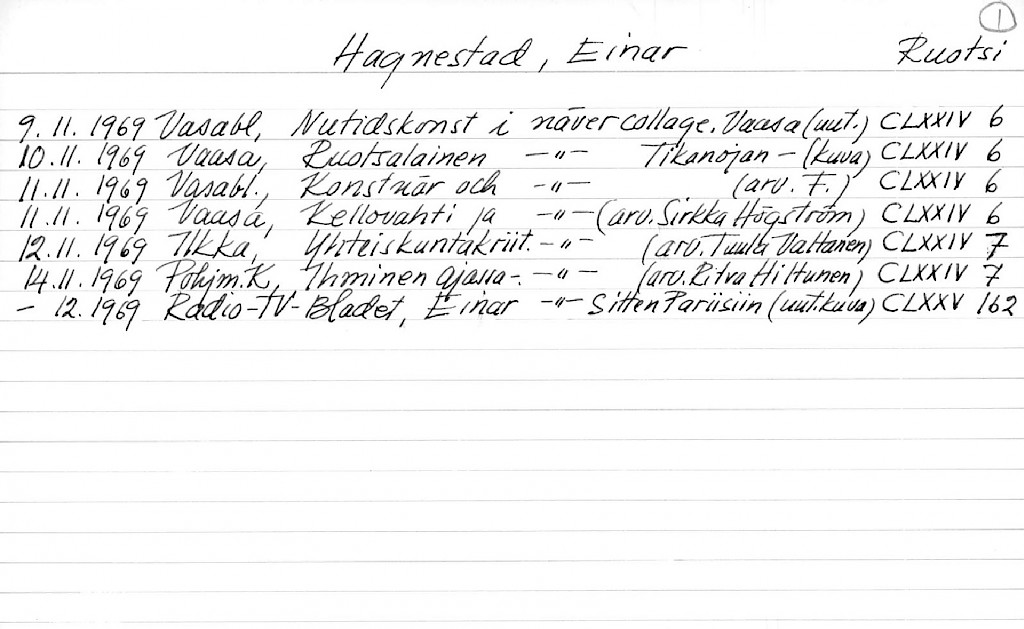 1
Hagnestad, Einar Ruotsi
9.11.1969 Vasabl, Nutidskonst i näver collage. Vaasa (uut.) CLXXIV 6
10.11.1969 Vaasa, Ruotsalainen -"- Tikanojan - (kuva) CLXXIV 6
11.11.1969 Vasabl., Konstnär och -"- (arv. F.) CLXXIV 6
11.11.1969 Vaasa, Kellovahti ja -"- (arv. Sirkka Högström) CLXXIV 6
12.11.1969 Ilkka, Yhteiskuntakriit. -"- (arv. Tuula Valtanen) CLXXIV 7
14.11.1969 Pohjm.K, Ihminen ajassa-. -"- (arv. Ritva Hiltunen) CLXXIV 7
- 12.1969 Radio-TV-Bladet, Einar -"- Sitten Pariisiin (uut.kuva) CLXXV 162